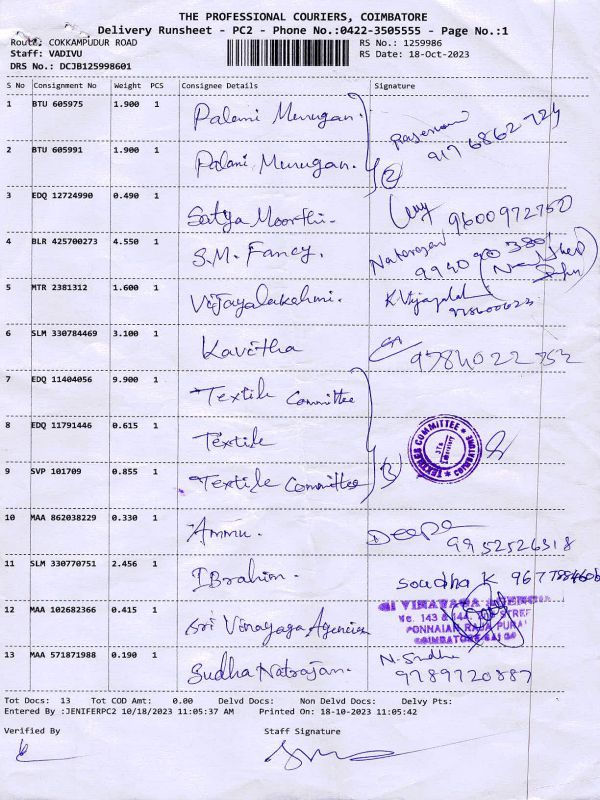 THE PROFESSIONAL COURIERS, COIMBATORE
Delivery Runsheet - PC2 - Phone No.:0422-3505555 - Page No.:1
Route: COKKAMPUDUR ROAD
RS No.: 1259986
Staff: VADIVU
RS Date: 18-Oct-2023
DRS No.: DCJB125998601
S No Consignment No Weight PCS Consignee Details Signature
1 BTU 605975 1.900 1 Palani Murugan.
917 6862 724
2 BTU 605991 1.900 1 Palani Murugan. 2
3 EDQ 12724990 0.490 1 Satya Moorthi. 9600972750
4 BLR 425700273 4.550 1 S.M. Fancy. Natarajan
5 MTR 2381312 1.600 1 Vijayalakshmi.
6 SLM 330784469 3.100 1 Kavitha 9784022752
7 EDQ 11404056 9.900 1 Textile Committee
8 EDQ 11791446 0.615 1 Textile
TEXTILES COMMITTEE COIMBATORE
9 SVP 101709 0.855 1 Textile Committee 3
10 MAA 862038229 0.330 1 Ammu. Deepa
9952526318
11 SLM 330770751 2.456 1 IBrahim. Soudha K
12 MAA 102682366 0.415 1 Sri Vinayaga Agencies
VINAYAGA
PONNAIAH RAJA PURA
COIMBATORE
13 MAA 571871988 0.190 1 Sudha Natrajan. N. Sudha
9789720887
Tot Docs: 13 Tot COD Amt: 0.00 Delvd Docs: Non Delvd Docs: Delvy Pts:
Entered By :JENIFERPC2 10/18/2023 11:05:37 AM Printed On: 18-10-2023 11:05:42
Verified By Staff Signature